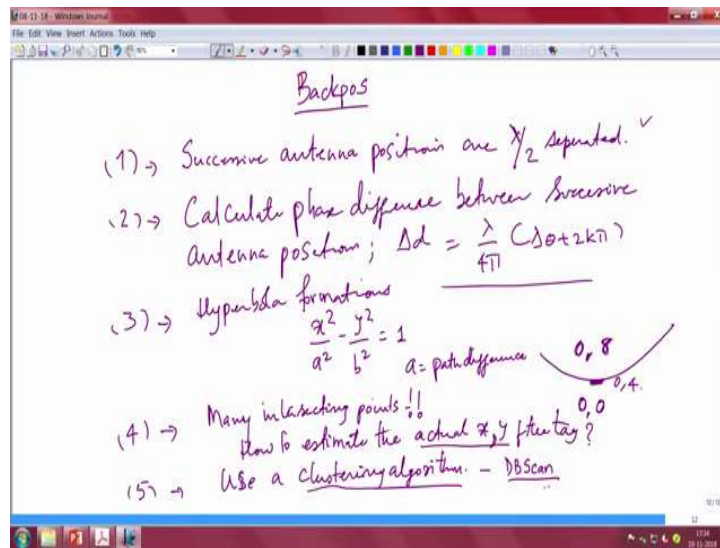 08-11-18 - Windows Journal
File Edit View Insert Actions Tools Help
Backpos
(1) → Successive antenna positions are λ/2 seperated. ✓
(2) → Calculate phase difference between Successive
antenna position; Δd = λ/4π (Δθ+2kπ)
(3) → Hyperbola formations
x²/a² - y²/b² = 1
a = path difference
0, 8
0, 4.
0, 0
(4) → Many intersecting points!!
How to estimate the actual x, y of the tag?
(5) → Use a clustering algorithm. - DBScan
12
13:14
19-11-2018